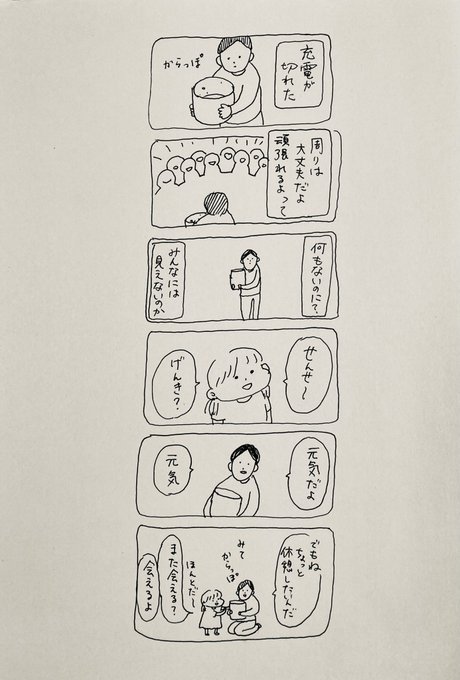 充電が
切れた
からっぽ
周りは
大丈夫だよ
頑張れるよって
何もないのに?
みんなには
見えないのか
せんせ〜
げんき?
元気だよ
元気
でもね
ちょっと
休憩したいんだ
みて
からっぽ
ほんとだ〜
また会える?
会えるよ